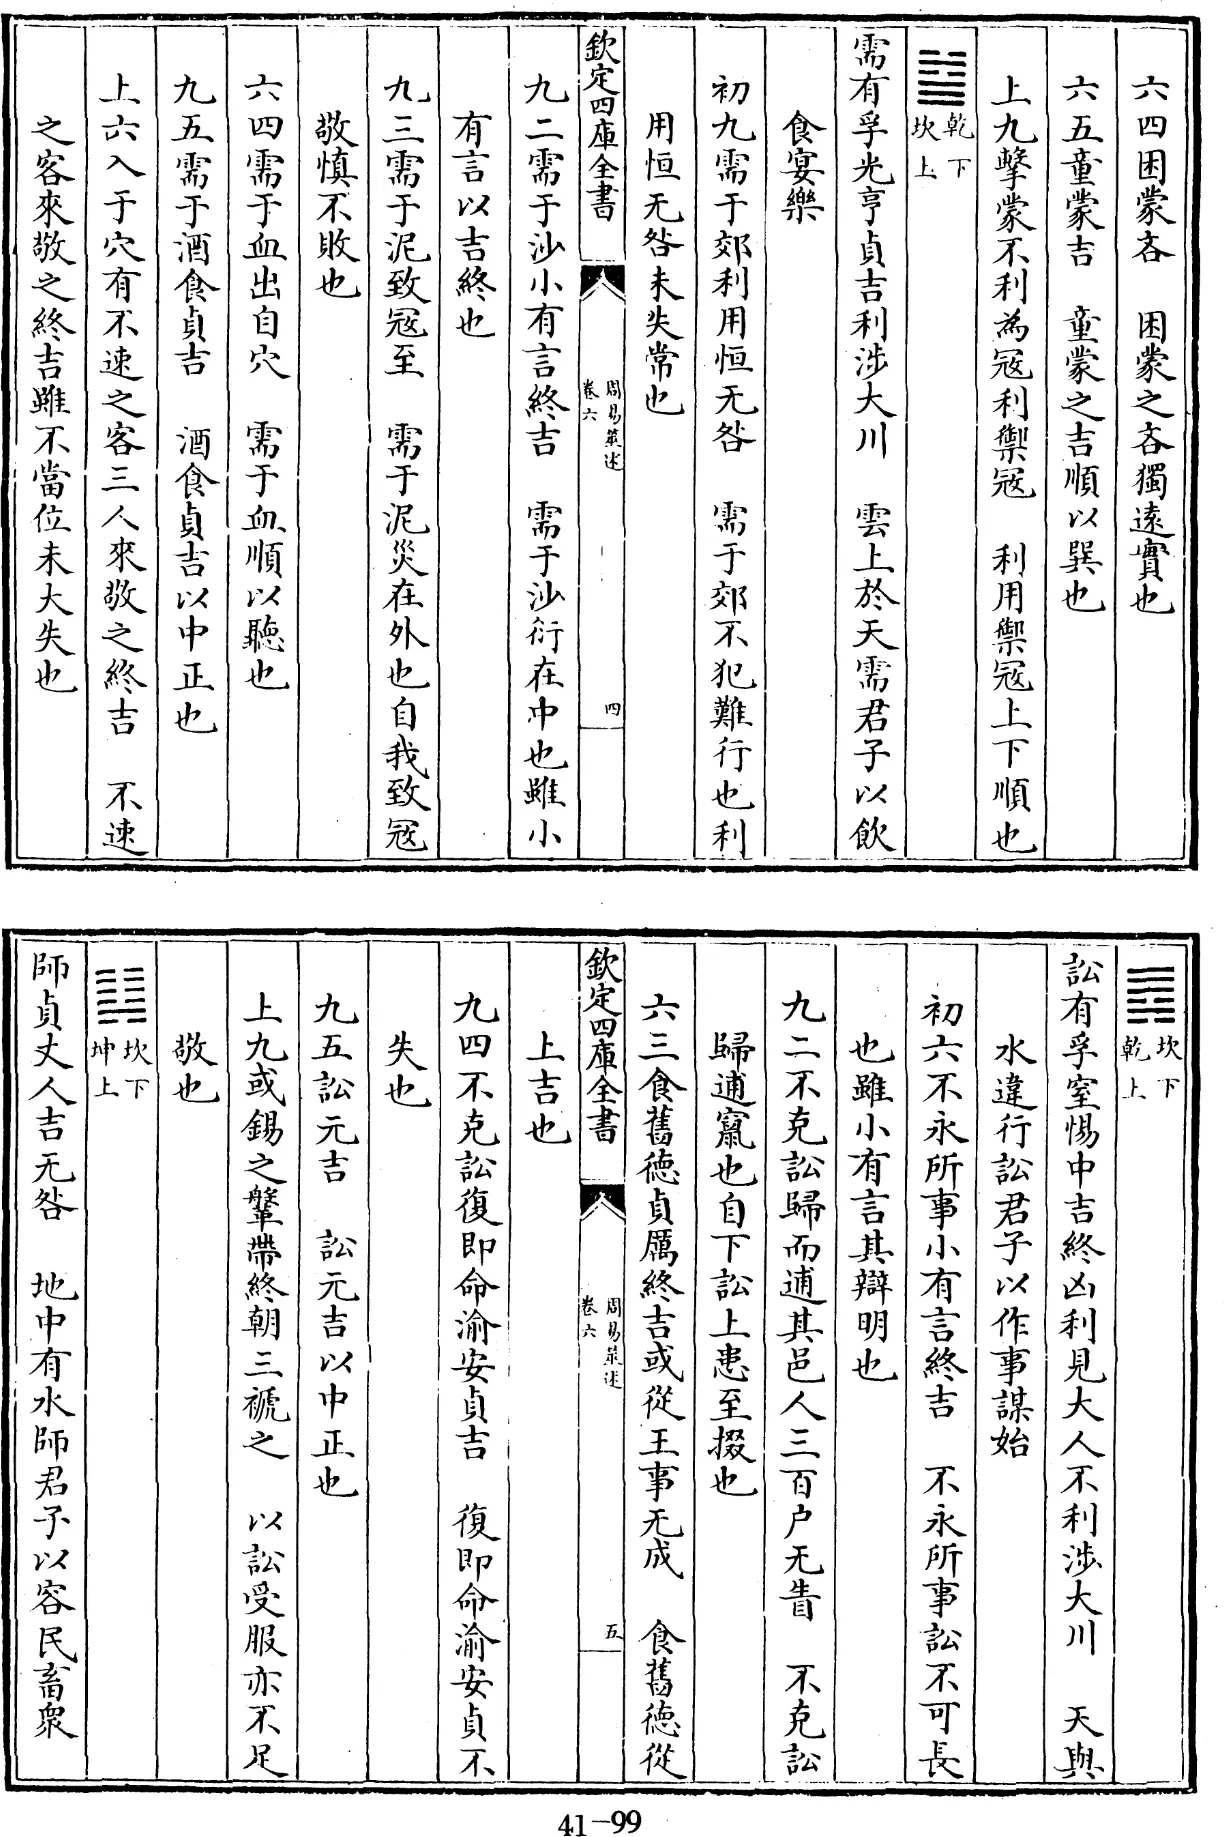 六四困蒙吝　困蒙之吝獨遠實也
六五童蒙吉　童蒙之吉順以巽也
上九擊蒙不利為寇利禦寇　利用禦寇上下順也
䷄乾下
坎上
需有孚光亨貞吉利涉大川　雲上於天需君子以飲
食宴樂
初九需于郊利用恒无咎　需于郊不犯難行也利
用恒无咎未失常也
欽定四庫全書
周易葉述
卷六
四
九二需于沙小有言終吉　需于沙衍在中也雖小
有言以吉終也
九三需于泥致寇至　需于泥災在外也自我致寇
敬慎不敗也
六四需于血出自穴　需于血順以聽也
九五需于酒食貞吉　酒食貞吉以中正也
上六入于穴有不速之客三人來敬之終吉　不速
之客來敬之終吉雖不當位未大失也
䷅坎下
乾上
訟有孚窒惕中吉終凶利見大人不利涉大川　天與
水違行訟君子以作事謀始
初六不永所事小有言終吉　不永所事訟不可長
也雖小有言其辯明也
九二不克訟歸而逋其邑人三百户无眚　不克訟
歸逋竄也自下訟上患至掇也
六三食舊德貞厲終吉或從王事无成　食舊德從
上吉也
欽定四庫全書
周易葉述
卷六
五
九四不克訟復即命渝安貞吉　復即命渝安貞不
失也
九五訟元吉　訟元吉以中正也
上九或錫之鞶帶終朝三褫之　以訟受服亦不足
敬也
䷆坎下
坤上
師貞丈人吉无咎　地中有水師君子以容民畜衆
41-99